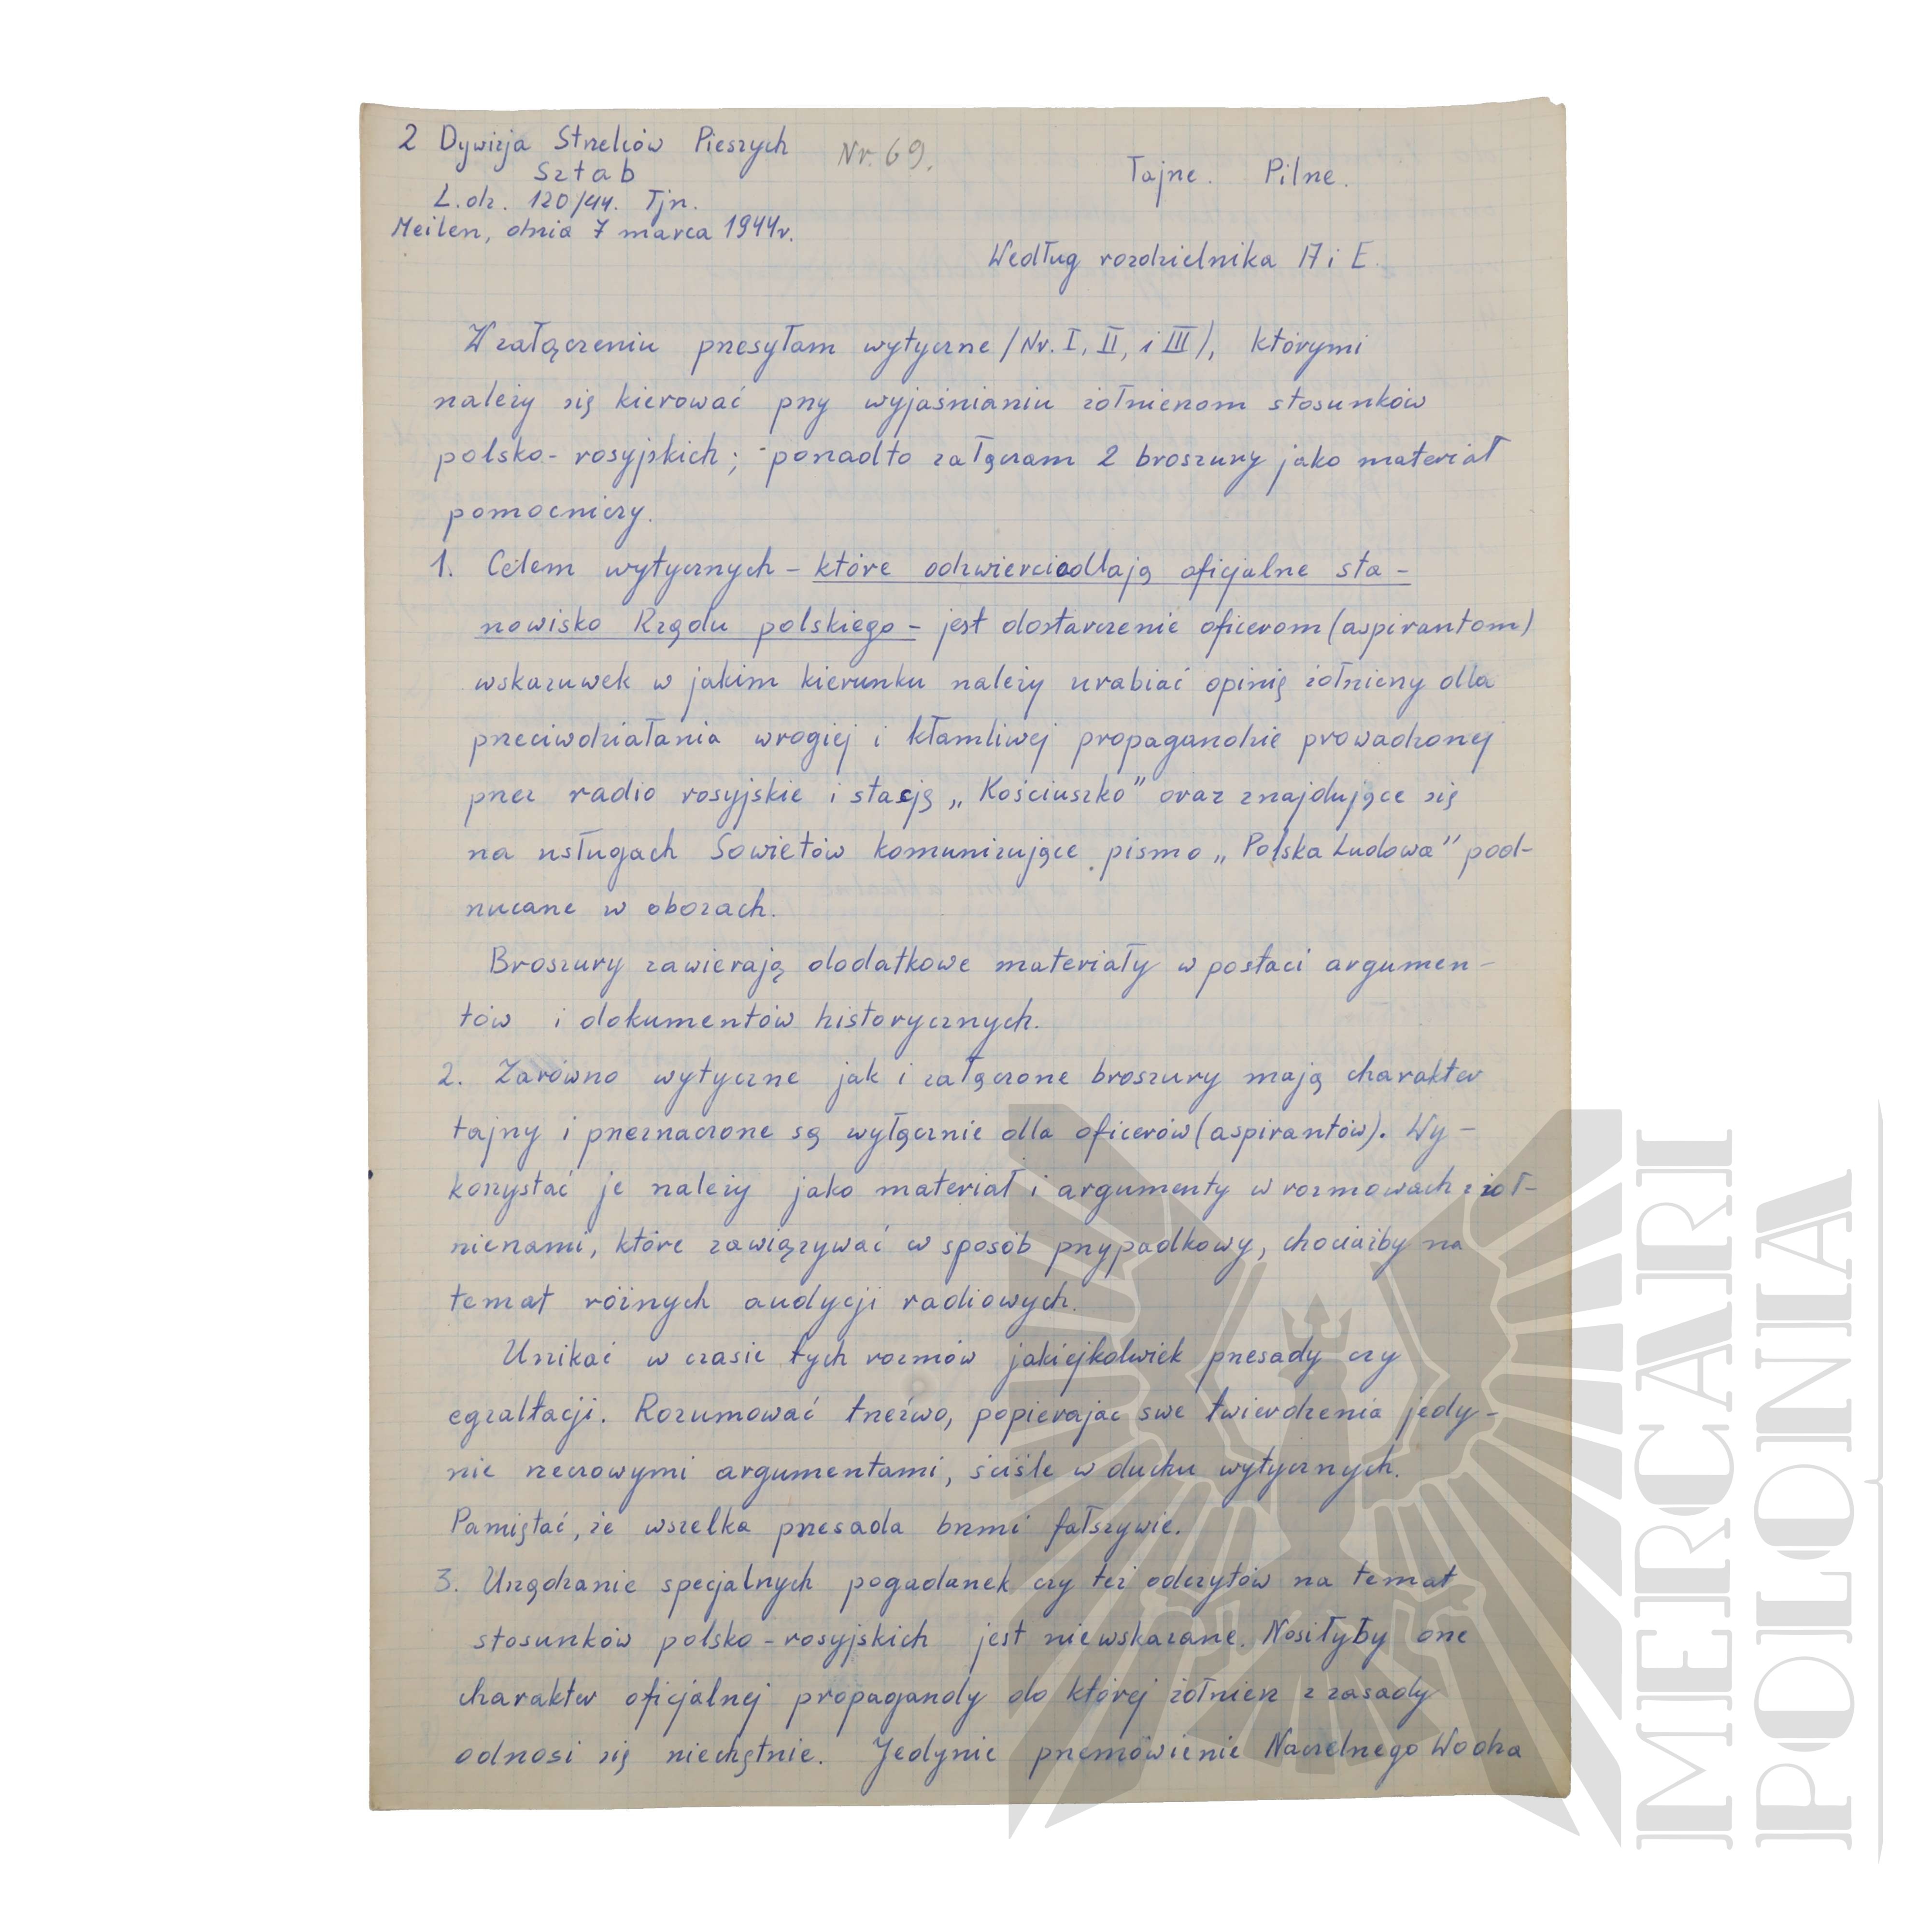 2 Dywizja Strzelców Pieszych
Nr. 69.
Sztab
Tajne. Pilne.
L.dz. 120/44. Tjn.
Meilen, dnia 7 marca 1944r.
Według rozdzielnika A i E.
W załączeniu przesyłam wytyczne /Nr. I, II, i III/, którymi
należy się kierować przy wyjaśnianiu żołnierzom stosunków
polsko-rosyjskich; ponadto załączam 2 broszury jako materiał
pomocniczy.
1. Celem wytycznych - które odzwierciadlają oficjalne sta-
nowisko Rządu polskiego - jest dostarczenie oficerom (aspirantom)
wskazuwek w jakim kierunku należy urabiać opinię żołnierzy dla
przeciwdziałania wrogiej i kłamliwej propagandzie prowadzonej
przez radio rosyjskie i stację „Kościuszko” oraz znajdujące się
na usługach Sowietów komunizujące pismo „Polska Ludowa” pod-
rzucane w obozach.
Broszury zawierają dodatkowe materiały w postaci argumen-
tów i dokumentów historycznych.
2. Zarówno wytyczne jak i załączone broszury mają charakter
tajny i przeznaczone są wyłącznie dla oficerów (aspirantów). Wy-
korzystać je należy jako materiał i argumenty w rozmowach z żoł-
nierzami, które zawiązywać w sposób przypadkowy, chociażby na
temat różnych audycji radiowych.
Unikać w czasie tych rozmów jakiejkolwiek przesady czy
egzaltacji. Rozumować trzeźwo, popierając swe twierdzenia jedy-
nie rzeczowymi argumentami, ściśle w duchu wytycznych.
Pamiętać, że wszelka przesada brzmi fałszywie.
3. Urządzanie specjalnych pogadanek czy też odczytów na temat
stosunków polsko-rosyjskich jest niewskazane. Nosiłyby one
charakter oficjalnej propagandy do której żołnierz z zasady
odnosi się niechętnie. Jedynie przemówienie Naczelnego Wodza
MERCARI
POLONIA